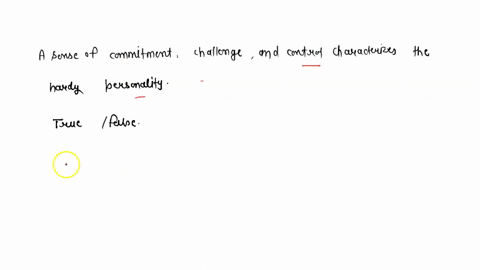 A sense of commitment, challenge, and control characterizes the
hardy personality.
True / False.